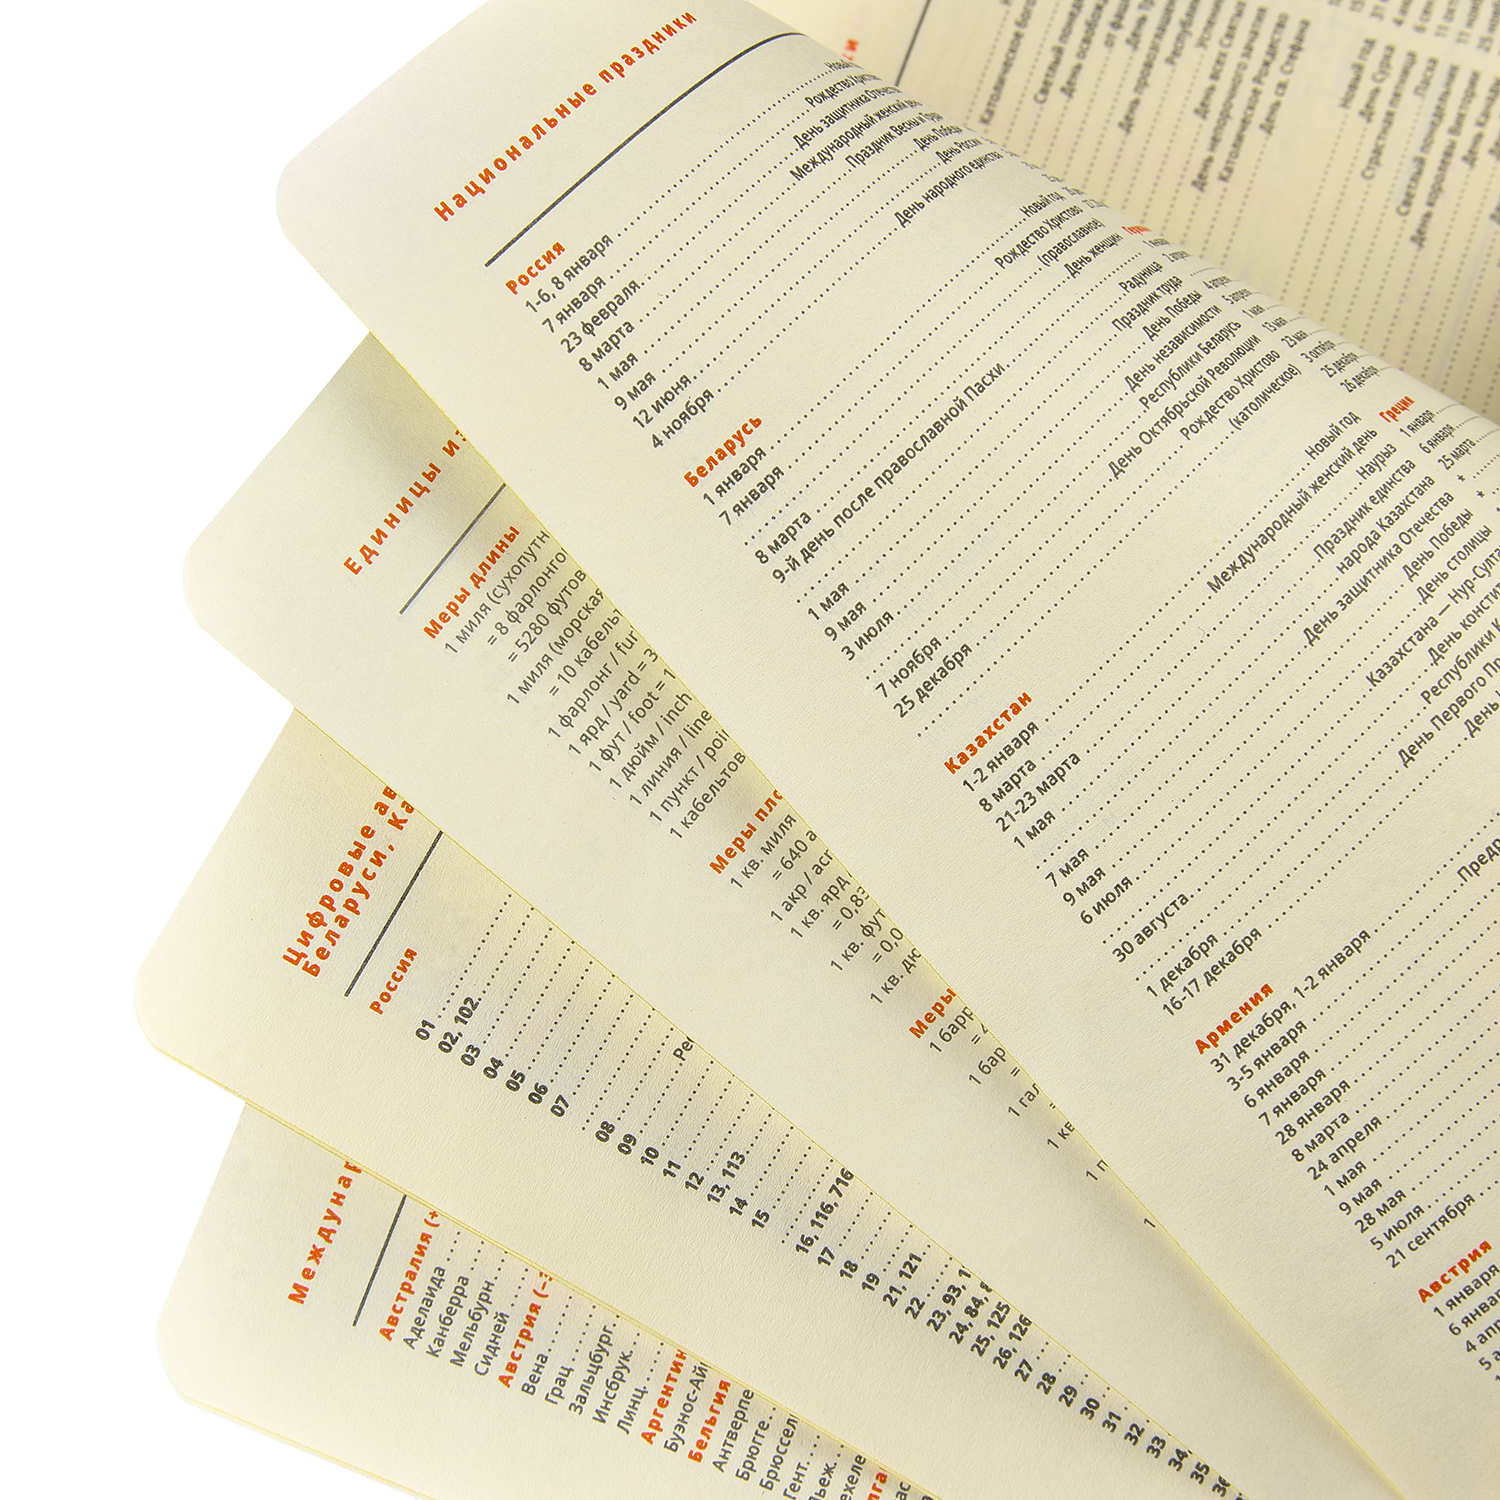 Национальные праздники
Россия
1-6, 8 января
7 января
23 февраля
День защитника Отечества
8 марта
Международный женский день
1 мая
Праздник Весны и Труда
9 мая
День Победы
12 июня
День России
4 ноября
День народного единства
Беларусь
1 января
Новый год
7 января
Рождество Христово
(православное)
8 марта
День женщин
9-й день после православной Пасхи
Радуница
1 мая
Праздник труда
9 мая
День Победы
3 июля
День независимости
Республики Беларусь
7 ноября
День Октябрьской Революции
25 декабря
Рождество Христово
(католическое)
Казахстан
1-2 января
Новый год
8 марта
Международный женский день
21-23 марта
Наурыз
1 мая
Праздник единства
народа Казахстана
7 мая
День защитника Отечества
9 мая
День Победы
6 июля
День столицы
Казахстана — Нур-Султ
30 августа
День конститу
Республики К
1 декабря
День Первого Пр
16-17 декабря
День
Армения
31 декабря, 1-2 января
3-5 января
Предр
6 января
7 января
28 января
8 марта
24 апреля
1 мая
9 мая
28 мая
5 июля
21 сентября
Австрия
1 января
6 января
Греция
1 января
6 января
25 марта
Католическое Рождество
День св. Стефана
Новый год
День Сурка
Страстная пятница
Пасха
Светлый понедельник
День королевы Виктории
Единицы из
Меры длины
1 миля (сухопутн
= 8 фарлонго
= 5280 футов
1 миля (морская
= 10 кабельт
1 фарлонг / fur
1 ярд / yard = 3
1 фут / foot = 1
1 дюйм / inch
1 линия / line
1 пункт / poi
1 кабельтов
Меры пло
1 кв. миля
= 640 а
1 акр / acr
1 кв. ярд
= 0,83
1 кв. фут
= 0,0
1 кв. дю
Меры
1 барр
1 бар
1 гал
1 кв
1 п
1
Цифровые ав
Беларуси, Ка
Россия
01
02, 102
03
04
05
06
07
Рес
08
09
10
11
12
13, 113
14
15
16, 116, 716
17
18
19
21, 121
22
23, 93, 1
24, 84, 8
25, 125
26, 126
27
28
29
30
31
32
33
34
35
36
Междунар
Австралия (+
Аделаида
Канберра
Мельбурн
Сидней
Австрия (-
Вена
Грац
Зальцбург
Инсбрук
Линц
Аргентин
Буэнос-Ай
Бельгия
Антверпе
Брюгге
Брюссел
Гент